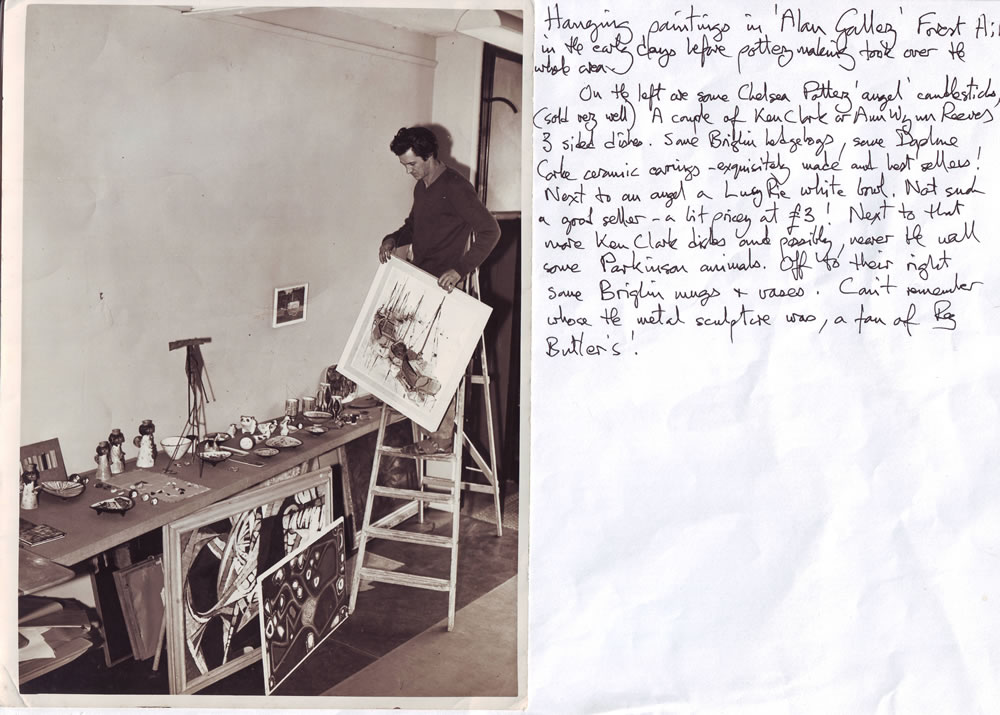 Hanging paintings in 'Alan Gallery' Forest Hi
in the early days before pottery making took over the
whole area.
On the left are some Chelsea Pottery 'angel' candlesticks,
(sold very well) A couple of Ken Clark or Ann Wynn Reeves
3 sided dishes. Some Briglin hedgehogs, some Daphne
Corke ceramic earrings - exquisitely made and best sellers!
Next to an angel a Lucy Rie white bowl. Not such
a good seller - a bit pricey at £3! Next to that
more Ken Clark dishes and possibly, nearer the wall
some Parkinson animals. Off to their right
some Briglin mugs + vases. Can't remember
whose the metal sculpture was, a fan of Reg
Butler's!